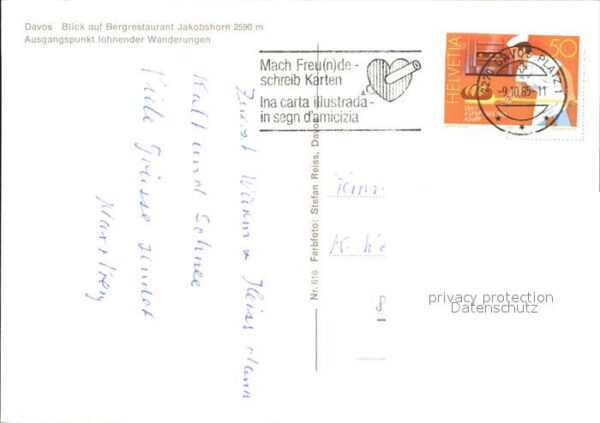 Davos Blick auf Bergrestaurant Jakobshorn 2590 m
Ausgangspunkt lohnender Wanderungen
Mach Freu(n)de -
schreib Karten
Ina carta illustrada -
in segn d'amicizia
HELVETIA
50
7270 DAVOS PLATZ 1
-9.10.85-11
Zuerst Warm u Heiss dann
Kalt und Schnee
Viele Grüsse sendet
Nr. 616 Farbfoto: Stefan Reiss, Davos
privacy protection
Datenschutz